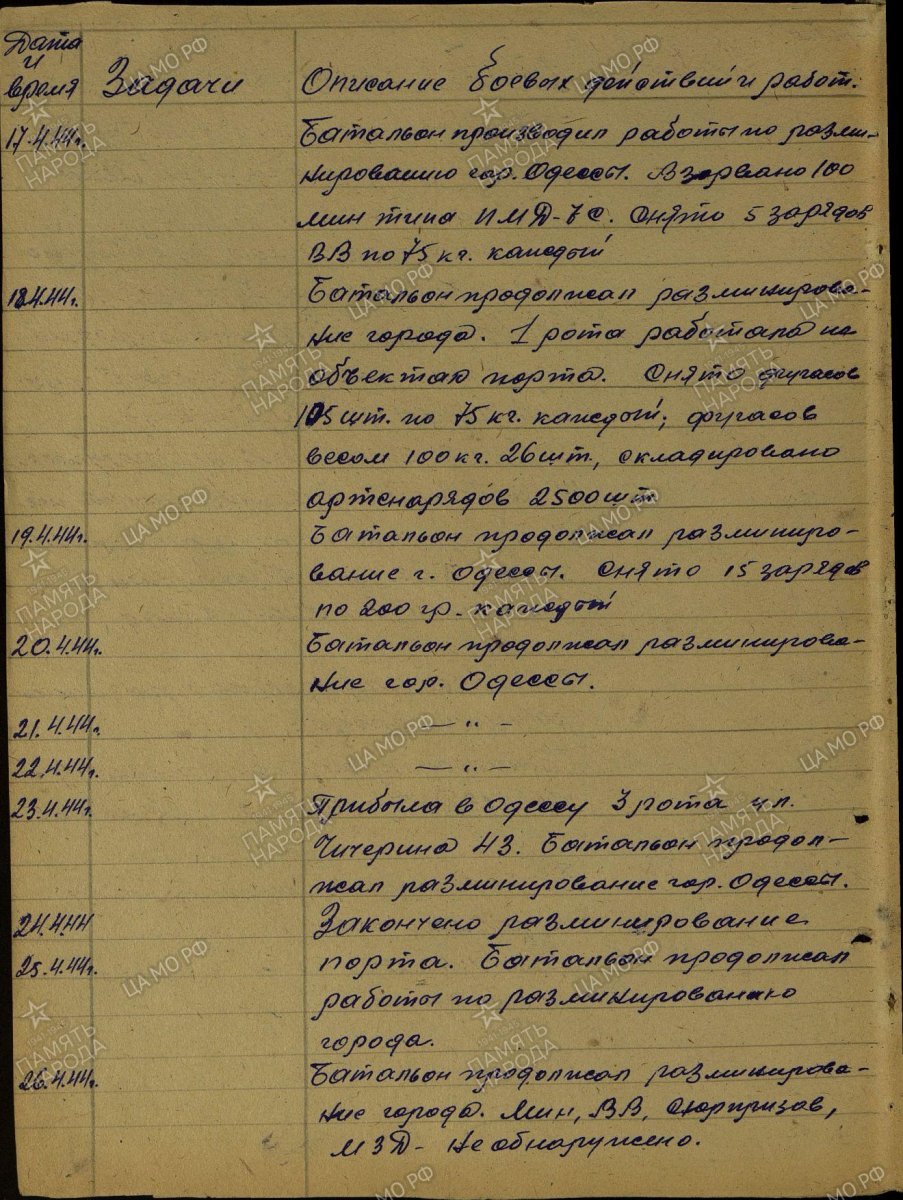 Дата
и
время
Задачи
Описание боевых действий и работ.
17.4.44г.
Батальон производил работы по разми-
нированию гор. Одессы. Взорвано 100
мин типа ПМД-7С. Снято 5 зарядов
ВВ по 75 кг. каждый
18.4.44г.
Батальон продолжал разминирова-
ние города. 1 рота работала на
объектах порта. Снято фугасов
105 шт. по 75 кг. каждый; фугасов
весом 100 кг. 26 шт., складировано
артснарядов 2500 шт
19.4.44г.
Батальон продолжал разминиро-
вание г. Одессы. Снято 15 зарядов
по 200 гр. каждый
20.4.44г.
Батальон продолжал разминирова-
ние гор. Одессы.
21.4.44г.
— " —
22.4.44г.
— " —
23.4.44г.
Прибыла в Одессу 3 рота ул.
Чичерина 43. Батальон продол-
жал разминирование гор. Одессы.
24.4.44
Закончено разминирование
25.4.44г.
порта. Батальон продолжал
работы по разминированию
города.
26.4.44г.
Батальон продолжал разминирова-
ние города. Мин, ВВ, Сюрпризов,
МЗД - не обнаружено.
ПАМЯТЬ НАРОДА
ЦА МО РФ